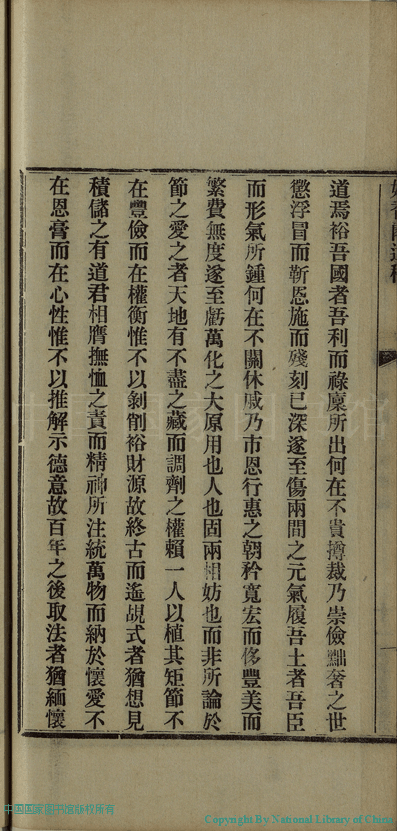 道焉裕吾國者吾利而祿廩所出何在不貴撙裁乃崇儉黜奢之世
懲浮冒而靳恩施而殘刻已深遂至傷兩間之元氣履吾土者吾臣
而形氣所鍾何在不關休戚乃市恩行惠之朝矜寬宏而侈豐美而
繁費無度遂至虧萬化之大原用也人也固兩相妨也而非所論於
節之愛之者天地有不盡之藏而調劑之權賴一人以植其矩節不
在豐儉而在權衡惟不以剝削裕財源故終古而遙覘式者猶想見
積儲之有道君相膺撫恤之責而精神所注統萬物而納於懷愛不
在恩膏而在心性惟不以推解示德意故百年之後取法者猶緬懷
中国国家图书馆
中国国家图书馆版权所有
Copyright By National Library of China